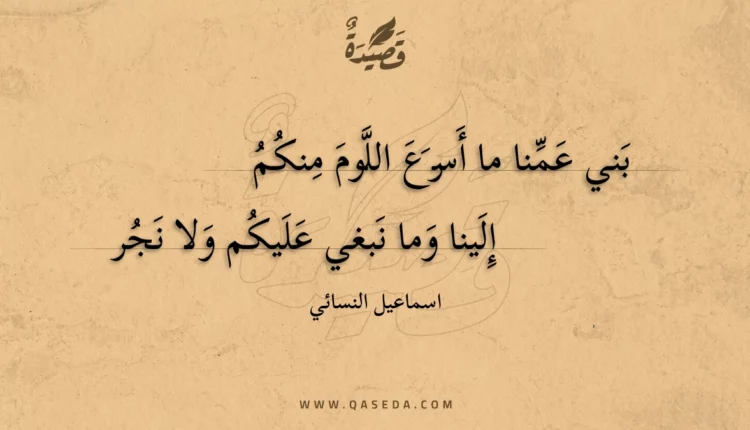 قَصِيْدَةٌ
بَني عَمِّنا ما أَسرَعَ اللَّومَ مِنكُمُ
إِلَينا وَما نَبغي عَلَيكُم وَلا نَجُر
اسماعيل النسائي
WWW.QASEDA.COM